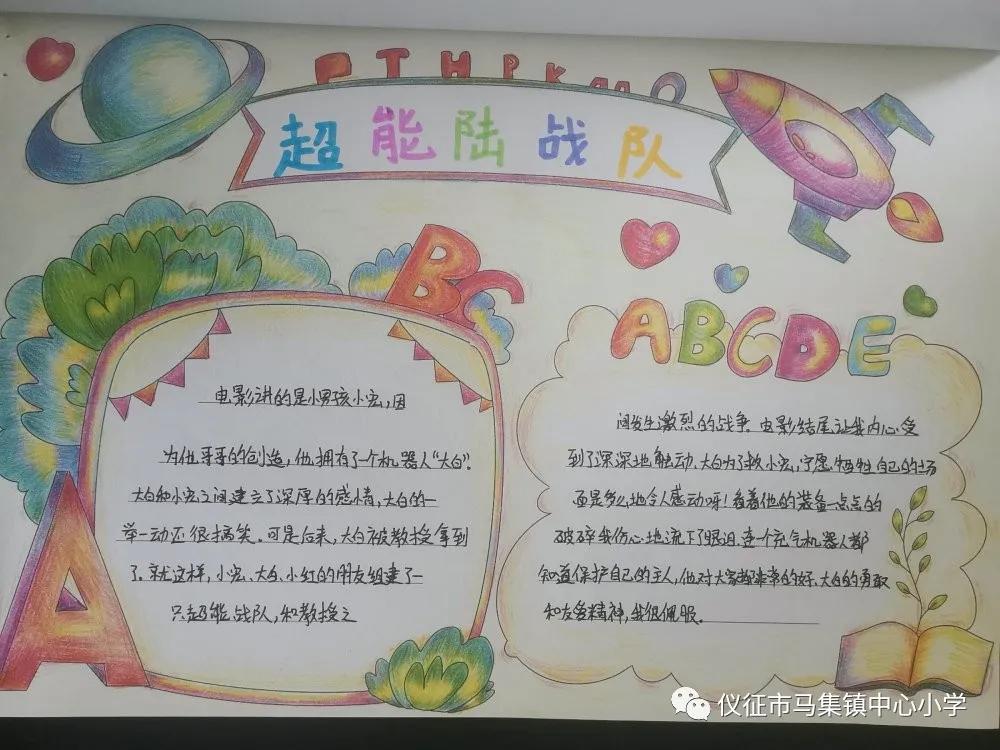 PTHPKmo
超能陆战队
BC
ABCDE
A
电影讲的是小男孩小宏，因
为他哥哥的创造，他拥有了一个机器人“大白”。
大白和小宏之间建立了深厚的感情，大白的一
举一动还很搞笑。可是后来，大白被教授拿到
了。就这样，小宏、大白、小红的朋友组建了一
只超能战队，和教授之
间发生激烈的战争。电影结尾让我内心受
到了深深地触动。大白为了救小宏，宁愿牺牲自己的场
面是多么地令人感动呀！看着他的装备一点点的
破碎我伤心地流下了眼泪。连一个充气机器人都
知道保护自己的主人，他对大家都非常的好。大白的勇敢
和友爱精神，我很佩服。
仪征市马集镇中心小学